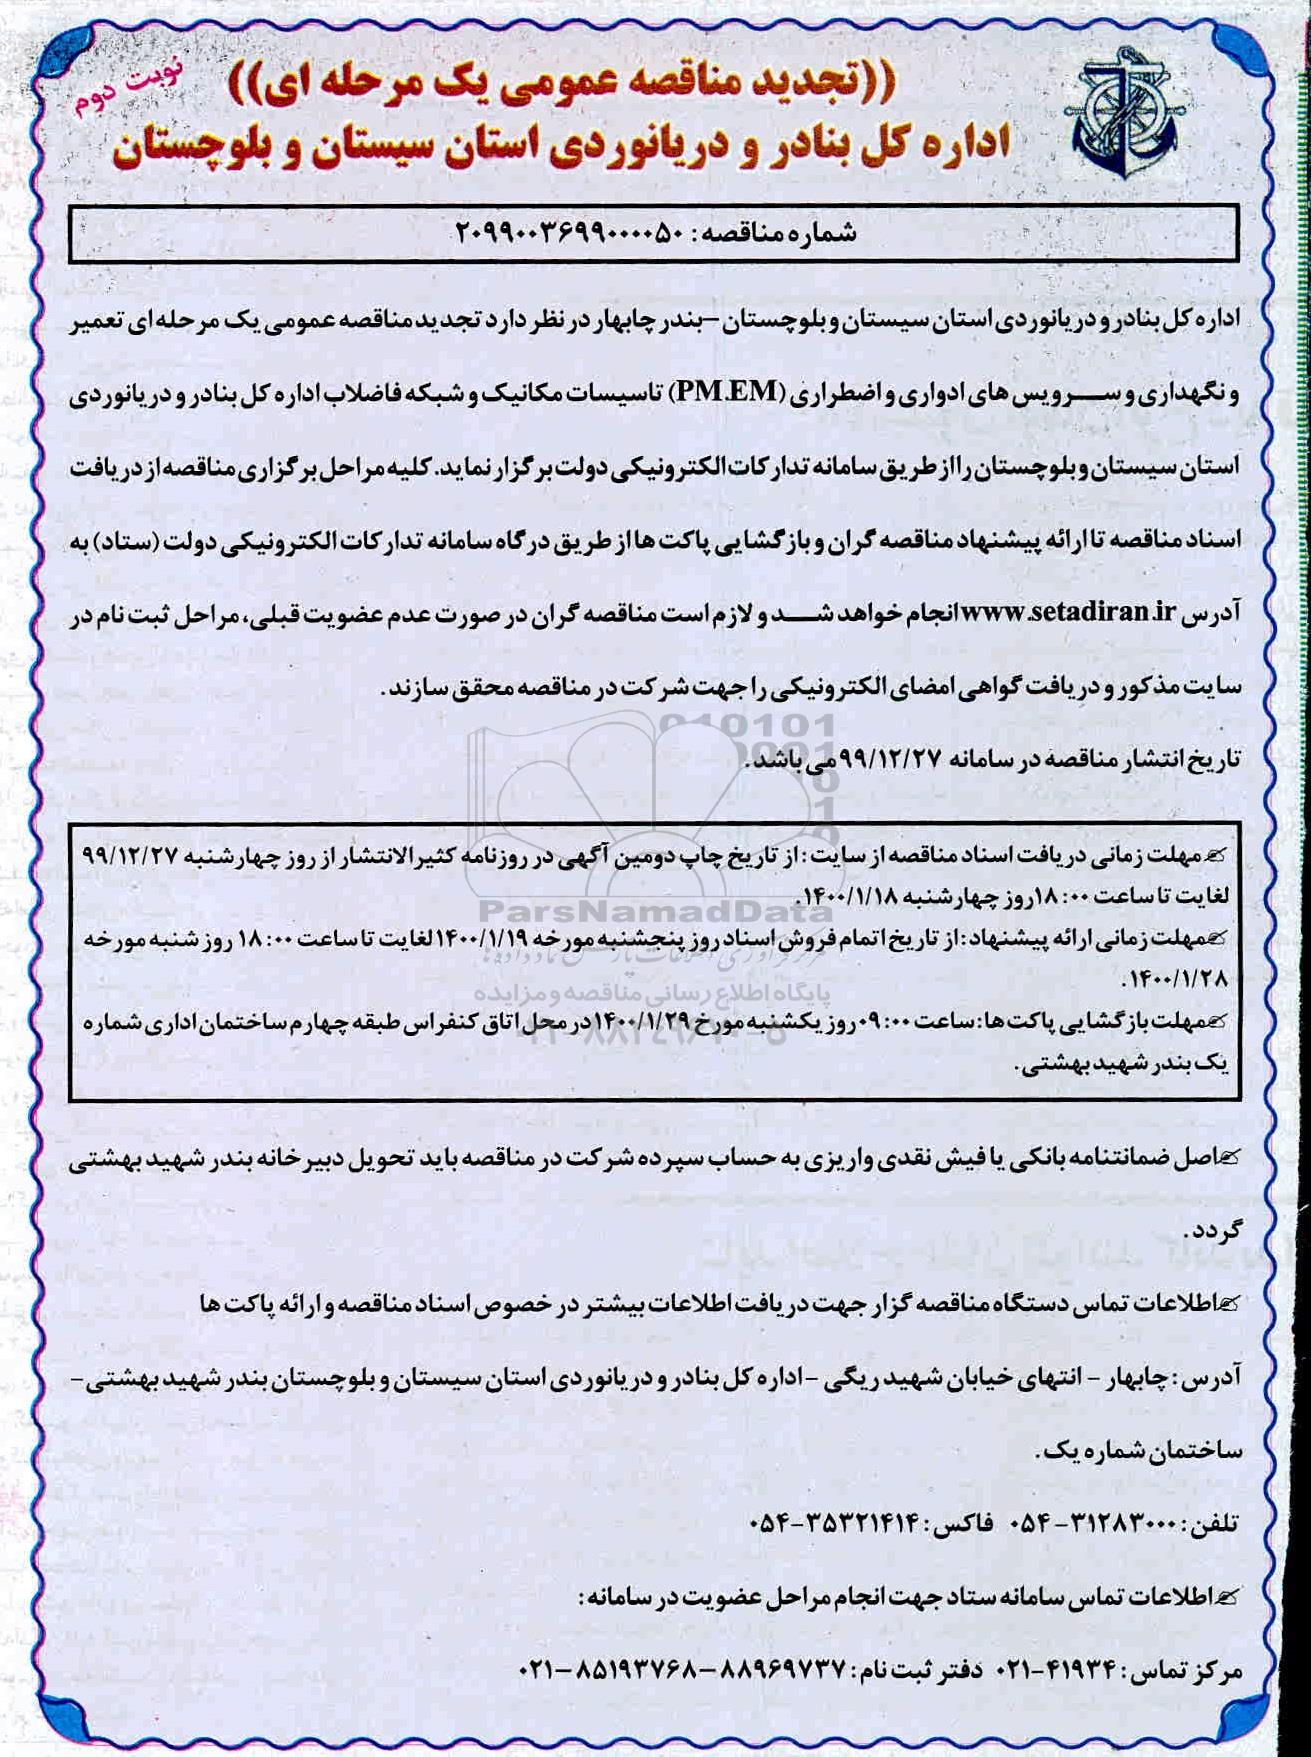 نوبت دوم
((تجدید مناقصه عمومی یک مرحله ای))
اداره کل بنادر و دریانوردی استان سیستان و بلوچستان
شماره مناقصه: ۲۰۹۹۰۰۳۶۹۹۰۰۰۰۵۰
اداره کل بنادر و دریانوردی استان سیستان و بلوچستان –بندر چابهار در نظر دارد تجدید مناقصه عمومی یک مرحله ای تعمیر
و نگهداری و سرویس های ادواری و اضطراری (PM.EM) تاسیسات مکانیک و شبکه فاضلاب اداره کل بنادر و دریانوردی
استان سیستان و بلوچستان را از طریق سامانه تدارکات الکترونیکی دولت برگزار نماید. کلیه مراحل برگزاری مناقصه از دریافت
اسناد مناقصه تا ارائه پیشنهاد مناقصه گران و بازگشایی پاکت ها از طریق درگاه سامانه تدارکات الکترونیکی دولت (ستاد) به
آدرس www.setadiran.ir انجام خواهد شد و لازم است مناقصه گران در صورت عدم عضویت قبلی، مراحل ثبت نام در
سایت مذکور و دریافت گواهی امضای الکترونیکی را جهت شرکت در مناقصه محقق سازند.
تاریخ انتشار مناقصه در سامانه ۹۹/۱۲/۲۷ می باشد.
مهلت زمانی دریافت اسناد مناقصه از سایت: از تاریخ چاپ دومین آگهی در روزنامه کثیرالانتشار از روز چهارشنبه ۹۹/۱۲/۲۷
لغایت تا ساعت ۱۸:۰۰ روز چهارشنبه ۱۴۰۰/۱/۱۸.
ParsNamadData
مهلت زمانی ارائه پیشنهاد: از تاریخ اتمام فروش اسناد روز پنجشنبه مورخه ۱۴۰۰/۱/۱۹ لغایت تا ساعت ۱۸:۰۰ روز شنبه مورخه
۱۴۰۰/۱/۲۸.
پایگاه اطلاع رسانی مناقصه و مزایده
مهلت بازگشایی پاکت ها: ساعت ۰۹:۰۰ روز یکشنبه مورخ ۱۴۰۰/۱/۲۹ در محل اتاق کنفراس طبقه چهارم ساختمان اداری شماره
یک بندر شهید بهشتی.
اصل ضمانتنامه بانکی یا فیش نقدی واریزی به حساب سپرده شرکت در مناقصه باید تحویل دبیرخانه بندر شهید بهشتی
گردد.
اطلاعات تماس دستگاه مناقصه گزار جهت دریافت اطلاعات بیشتر در خصوص اسناد مناقصه و ارائه پاکت ها
آدرس: چابهار – انتهای خیابان شهید ریگی –اداره کل بنادر و دریانوردی استان سیستان و بلوچستان بندر شهید بهشتی–
ساختمان شماره یک.
تلفن: ۳۱۲۸۳۰۰۰–۰۵۴ فاکس: ۳۵۳۲۱۴۱۴–۰۵۴
اطلاعات تماس سامانه ستاد جهت انجام مراحل عضویت در سامانه:
مرکز تماس: ۴۱۹۳۴–۰۲۱ دفتر ثبت نام: ۸۸۹۶۹۷۳۷–۸۵۱۹۳۷۶۸–۰۲۱